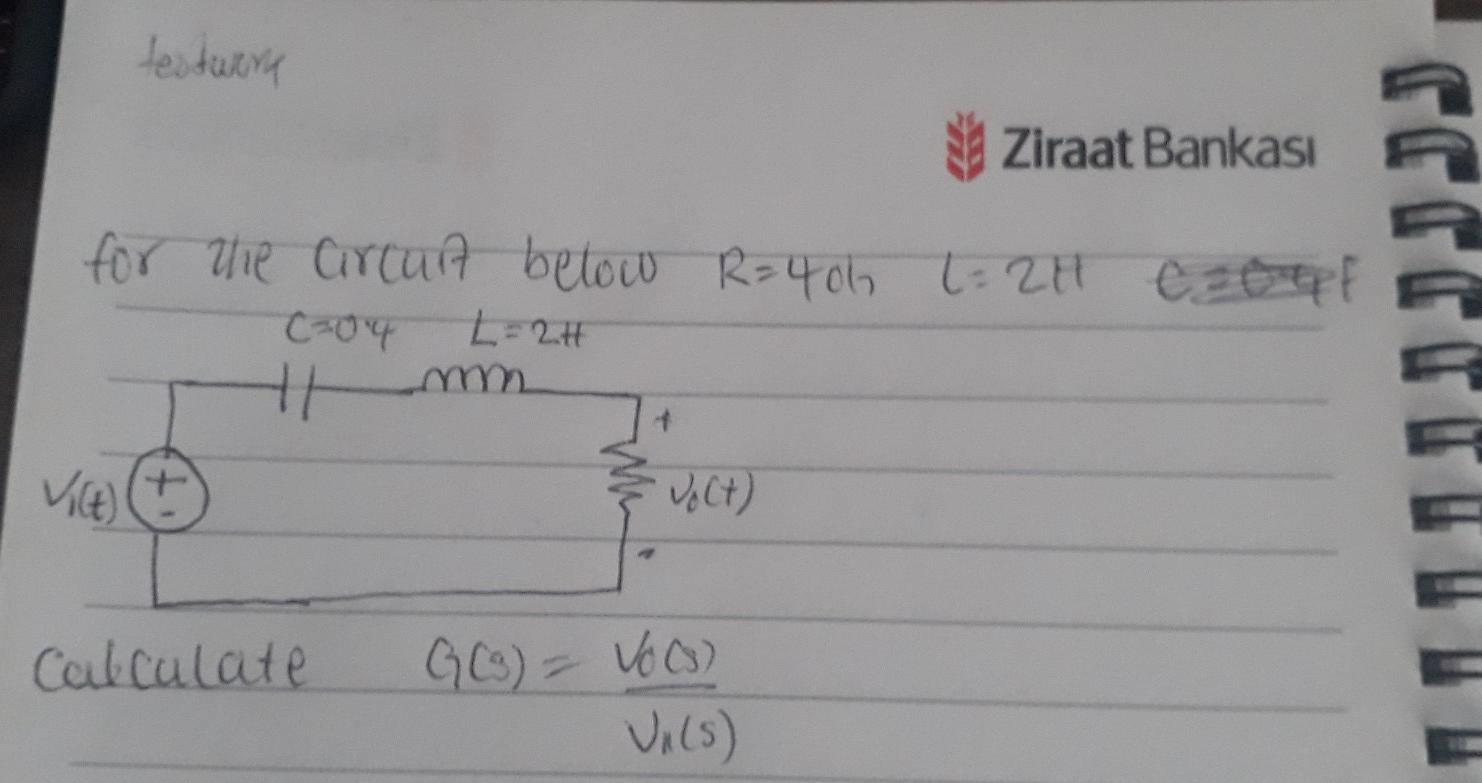 Ziraat Bankası
for the circuit below R=4oh L=2H
C=0.4 L=2H
+
Vi(t) + - Vo(t)
-
Calculate G(s) = Vo(s)
Vi(s)